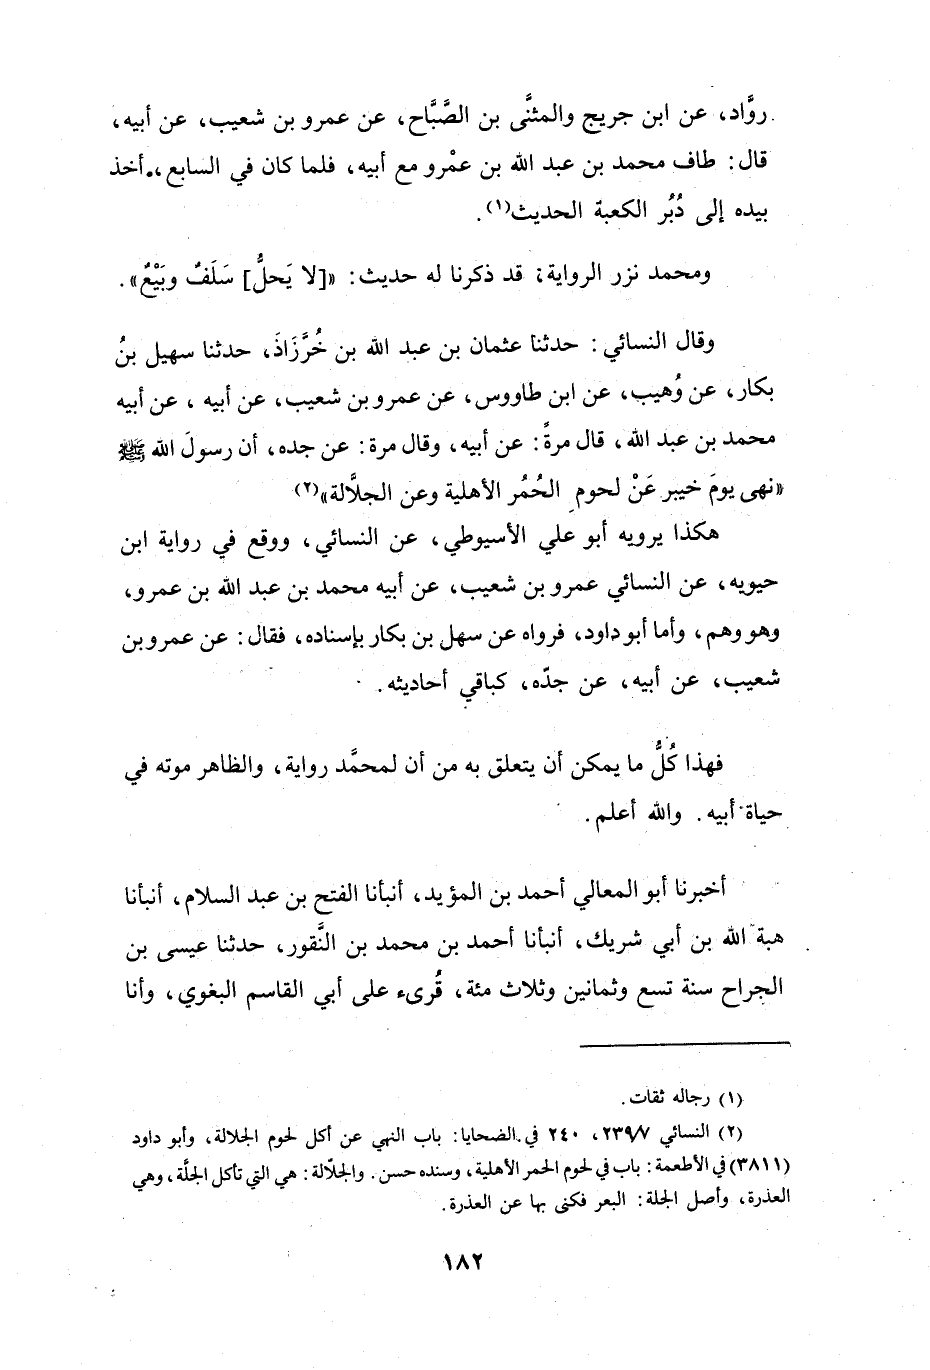 روَّاد، عن ابن جريج والمثنَّى بن الصَّبَّاح، عن عمرو بن شعيب، عن أبيه،
قال: طاف محمد بن عبد الله بن عمْرو مع أبيه، فلما كان في السابع، أخذ
بيده إلى دُبُر الكعبة الحديث(١).
ومحمد نزر الرواية؛ قد ذكرنا له حديث: «[لا يَحلُّ] سَلَفٌ وبَيْعٌ».
وقال النسائي: حدثنا عثمان بن عبد الله بن خُرَّزاذَ، حدثنا سهيل بنُ
بكار، عن وُهيب، عن ابن طاووس، عن عمرو بن شعيب، عن أبيه، عن أبيه
محمد بن عبد الله، قال مرةً: عن أبيه، وقال مرة: عن جده، أن رسولَ الله ﷺ
«نهى يومَ خيبر عَنْ لحومِ الحُمُر الأهلية وعن الجلاَّلة»(٢)
هكذا يرويه أبو علي الأسيوطي، عن النسائي، ووقع في رواية ابن
حيويه، عن النسائي عمرو بن شعيب، عن أبيه محمد بن عبد الله بن عمرو،
وهو وهم، وأما أبو داود، فرواه عن سهل بن بكار بإسناده، فقال: عن عمرو بن
شعيب، عن أبيه، عن جدّه، كباقي أحاديثه.
فهذا كُلُّ ما يمكن أن يتعلق به من أن لمحمَّد رواية، والظاهر موته في
حياة أبيه. والله أعلم.
أخبرنا أبو المعالي أحمد بن المؤيد، أنبأنا الفتح بن عبد السلام، أنبأنا
هبة الله بن أبي شريك، أنبأنا أحمد بن محمد بن النَّقور، حدثنا عيسى بن
الجراح سنة تسع وثمانين وثلاث مئة، قُرىء على أبي القاسم البغوي، وأنا
(١) رجاله ثقات.
(٢) النسائي ٢٣٩/٧، ٢٤٠ في الضحايا: باب النهي عن أكل لحوم الجلالة، وأبو داود
(٣٨١١) في الأطعمة: باب في لحوم الحمر الأهلية، وسنده حسن. والجلّالة: هي التي تأكل الجلَّة، وهي
العذرة، وأصل الجلة: البعر فكنى بها عن العذرة.
١٨٢